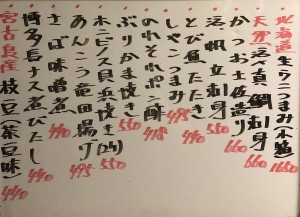 北海道生ウニつまみ(小箱) 1650
天然活〆真鯛刺身 660
かつお土佐造り 660
活〆帆立刺身 550
とび魚たたき
しゃこつまみ 495
のれそれポン酢 418
ぶりかま焼き 550
ホンビノス貝浜焼き(2ケ)
あんこう竜田揚げ 495
さば味噌煮 440
博多長ナス煮びたし
宮古島産枝豆(茶豆味) 440